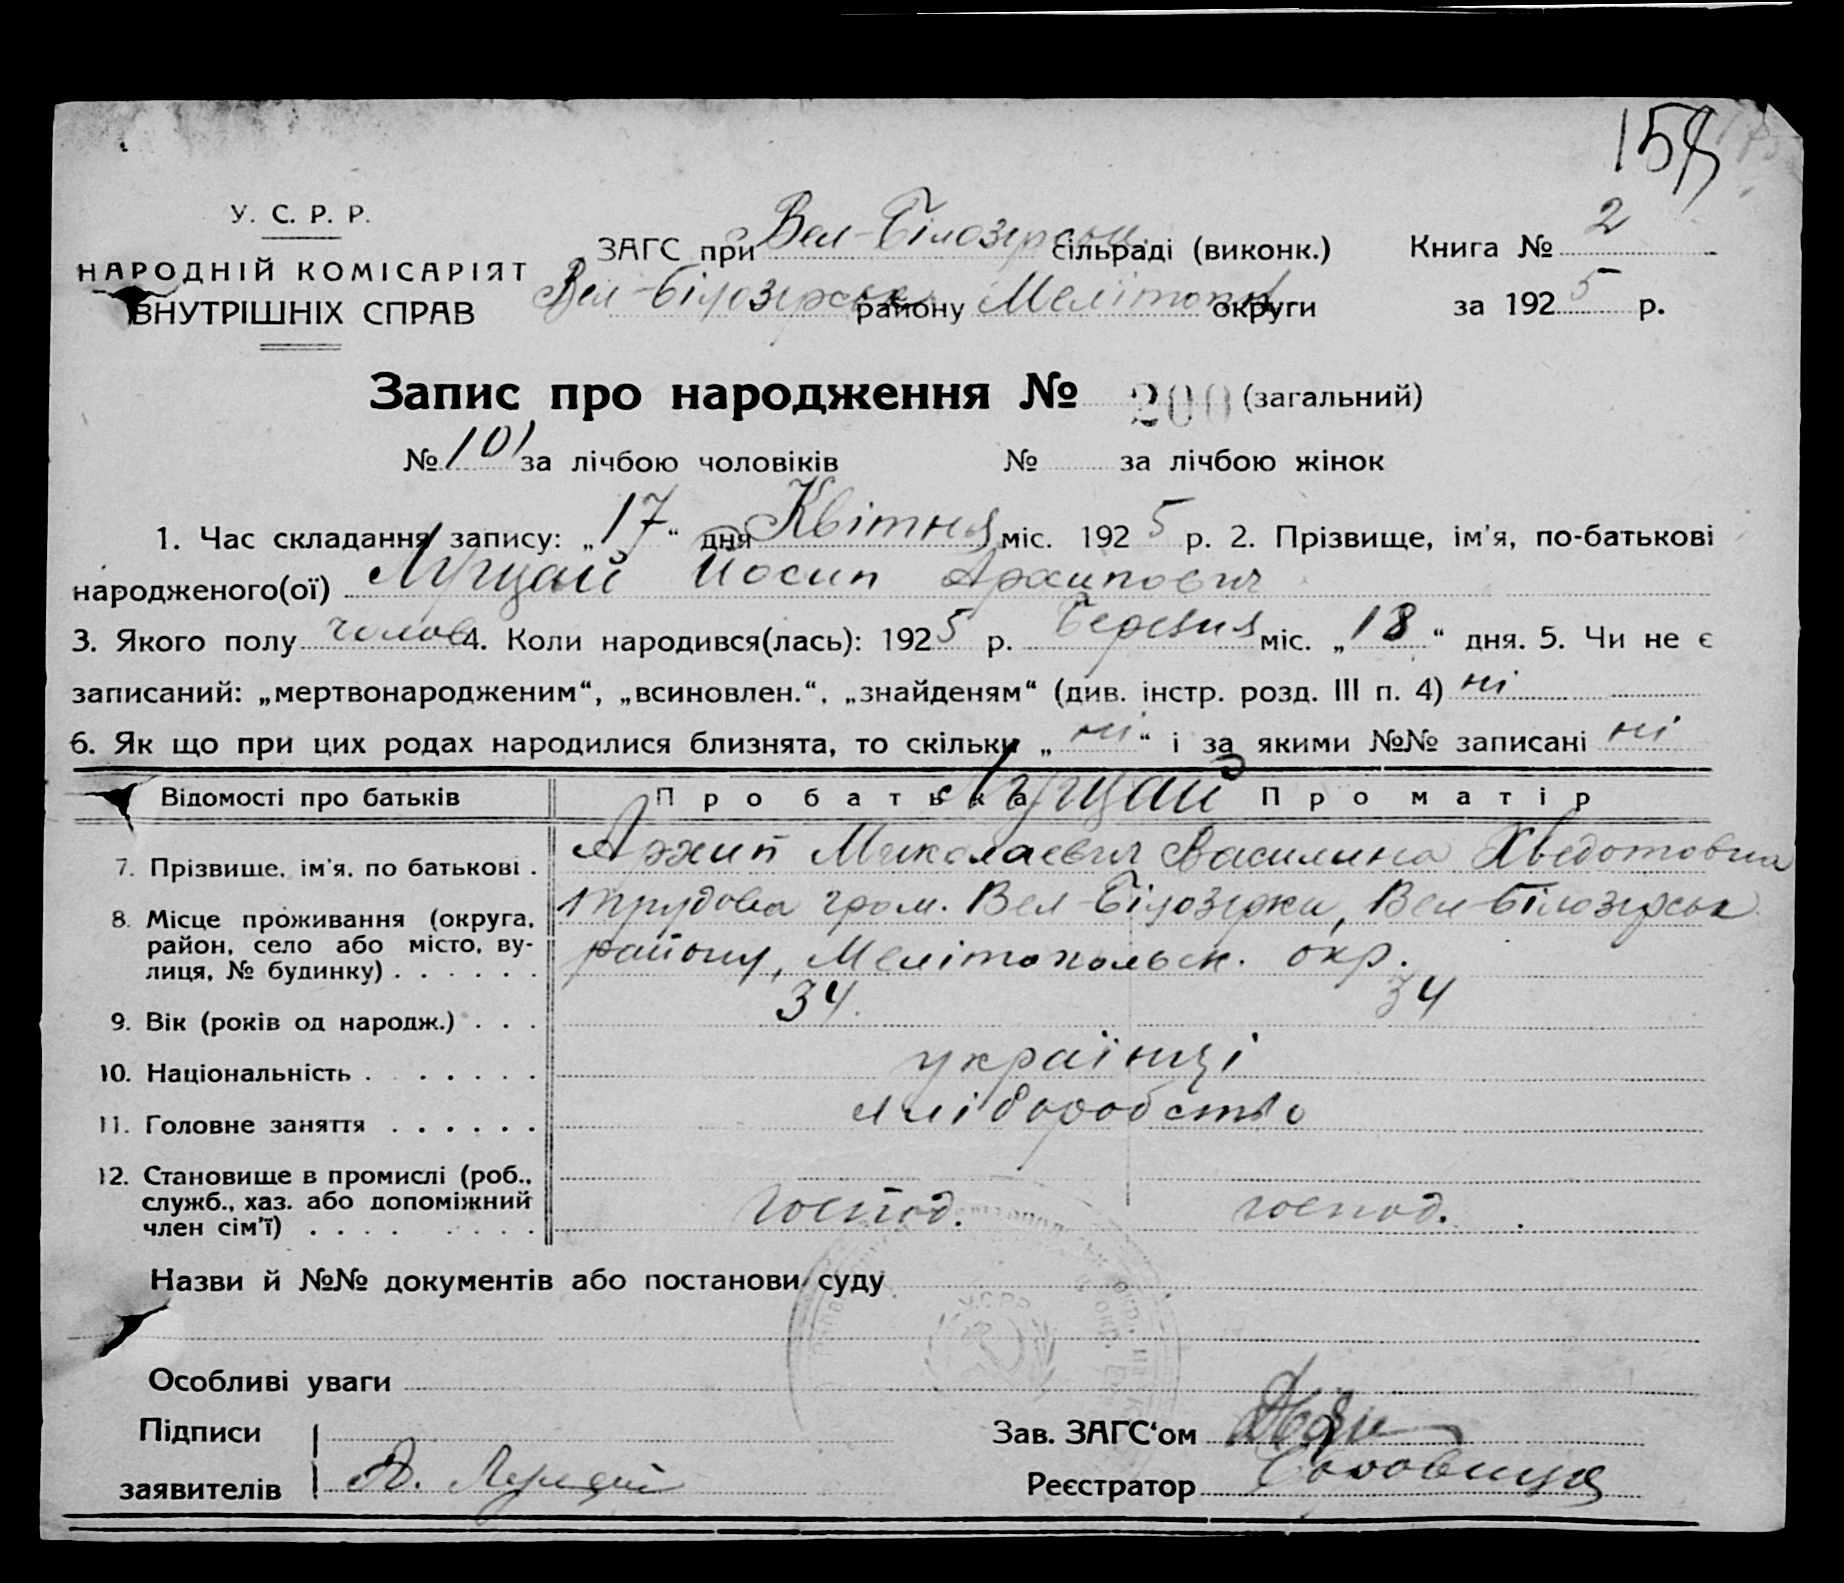 157
У. С. Р. Р.
НАРОДНІЙ КОМІСАРІЯТ
ВНУТРІШНІХ СПРАВ
ЗАГС при Вел-Білозерськ. сільраді (виконк.) Книга № 2
Вел-Білозерськ району Мелітоп. округи за 1925 р.
Запис про народження № 200 (загальний)
№ 101 за лічбою чоловіків № за лічбою жінок
1. Час складання запису: „17“ дня Квітня міс. 1925 р. 2. Прізвище, ім'я, по-батькові
народженого(ої) Лущай Йосип Архипович
3. Якого полу чолов 4. Коли народився(лась): 1925 р. Березня міс. „18“ дня. 5. Чи не є
записаний: „мертвонародженим“, „всиновлен.“, „знайденям“ (див. інстр. розд. III п. 4) ні
6. Як що при цих родах народилися близнята, то скільки „ні“ і за якими №№ записані ні
Відомості про батьків Про батька Лущай Про матір
7. Прізвище, ім'я, по батькові . Архип Миколаєвич Василина Хведотовна
8. Місце проживання (округа, трудова гром. Вел-Білозерка, Вел-Білозерськ
район, село або місто, ву-
лиця, № будинку) . . . . . . району, Мелітопольськ. окр.
9. Вік (років од народж.) . . . 34 34
10. Національність . . . . . . українці
11. Головне заняття . . . . . . хліборобство
12. Становище в промислі (роб.,
служб., хаз. або допоміжний господ. господ.
член сім'ї) . . . . . . . .
Назви й №№ документів або постанови суду
У.С.Р.Р.
Особливі уваги
Підписи Зав. ЗАГС‘ом
заявителів А. Лущай Реєстратор